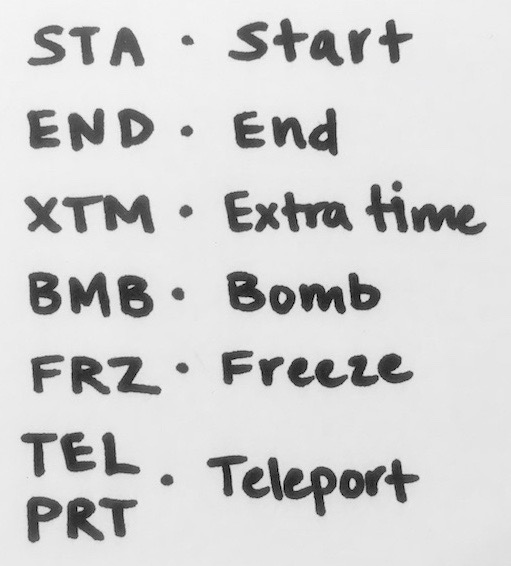 STA · Start
END · End
XTM · Extra time
BMB · Bomb
FRZ · Freeze
TEL
PRT · Teleport